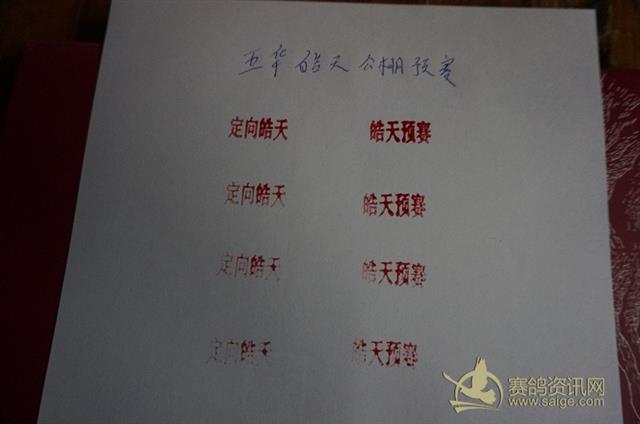 五华皓天公棚预赛
定向皓天 皓天预赛
定向皓天 皓天预赛
定向皓天 皓天预赛
定向皓天 皓天预赛
赛鸽资讯网
www.saige.com